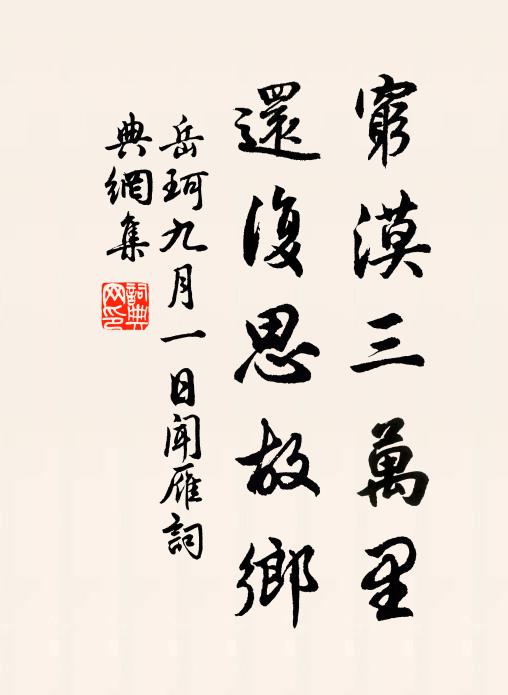 窮漠三萬里
還復思故鄉
岳珂九月一日聞雁詞
典網集
詞典
网印